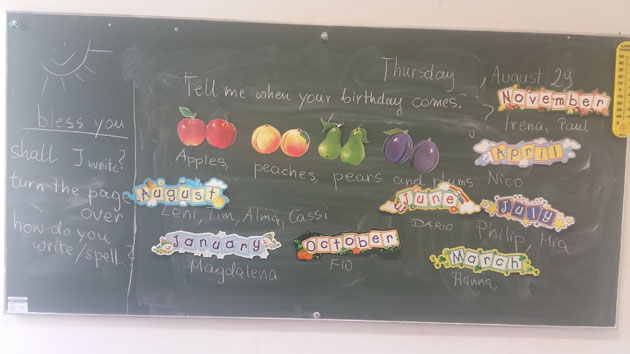 Thursday, August 29
Tell me when your birthday comes.
Apples, peaches, pears and plums
bless you
Shall I write?
turn the page
over
how do you
write/spell..?
November
Irena, Paul
April
Nico
August
Leni, Tim, Alma, Cassi
June
DARIO
July
Philip, Mia
January
Magdalena
October
FIO
March
Hanna,